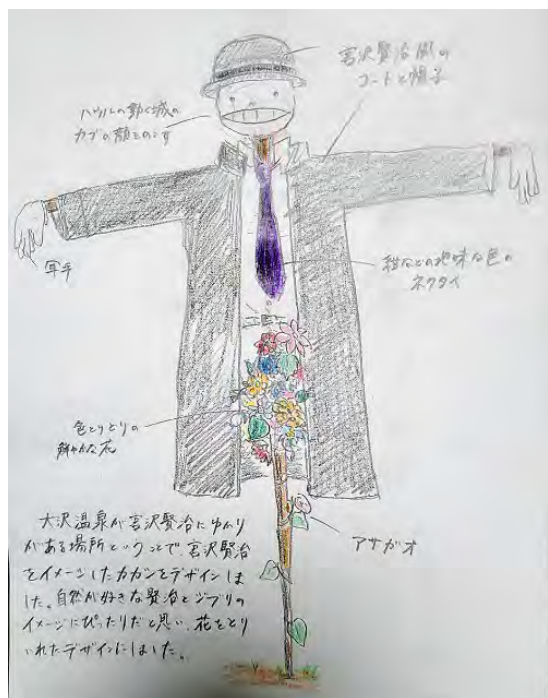 宮沢賢治風の
コートと帽子
ハウルの動く城の
カブの顔をのこす
軍手
紺などの地味な色の
ネクタイ
色とりどりの
鮮やかな花
アサガオ
大沢温泉が宮沢賢治にゆかり
がある場所ということで宮沢賢治
をイメージしたカカシをデザインしま
した。自然が好きな賢治とジブリの
イメージにぴったりだと思い、花をとり
いれたデザインにしました。